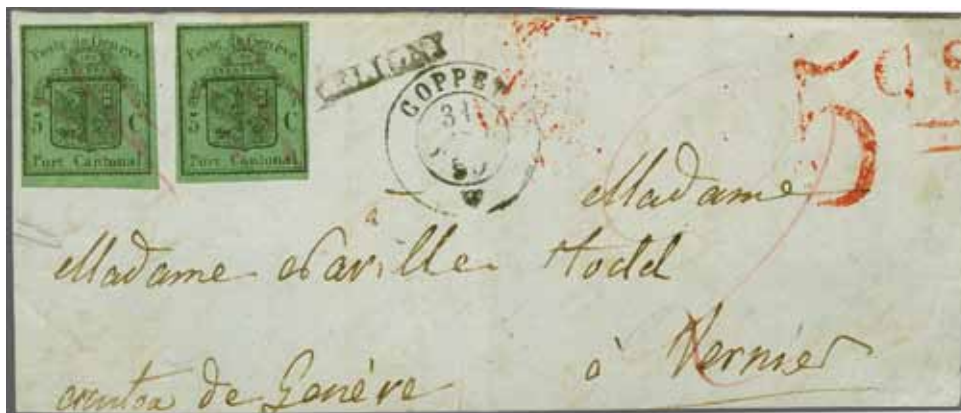 Poste de Genève
5 C
Port Cantonal
Poste de Genève
5 C
Port Cantonal
COPPET
31
5 cs
Madame
Madame Naville Todd
à Vernier
canton de Genève